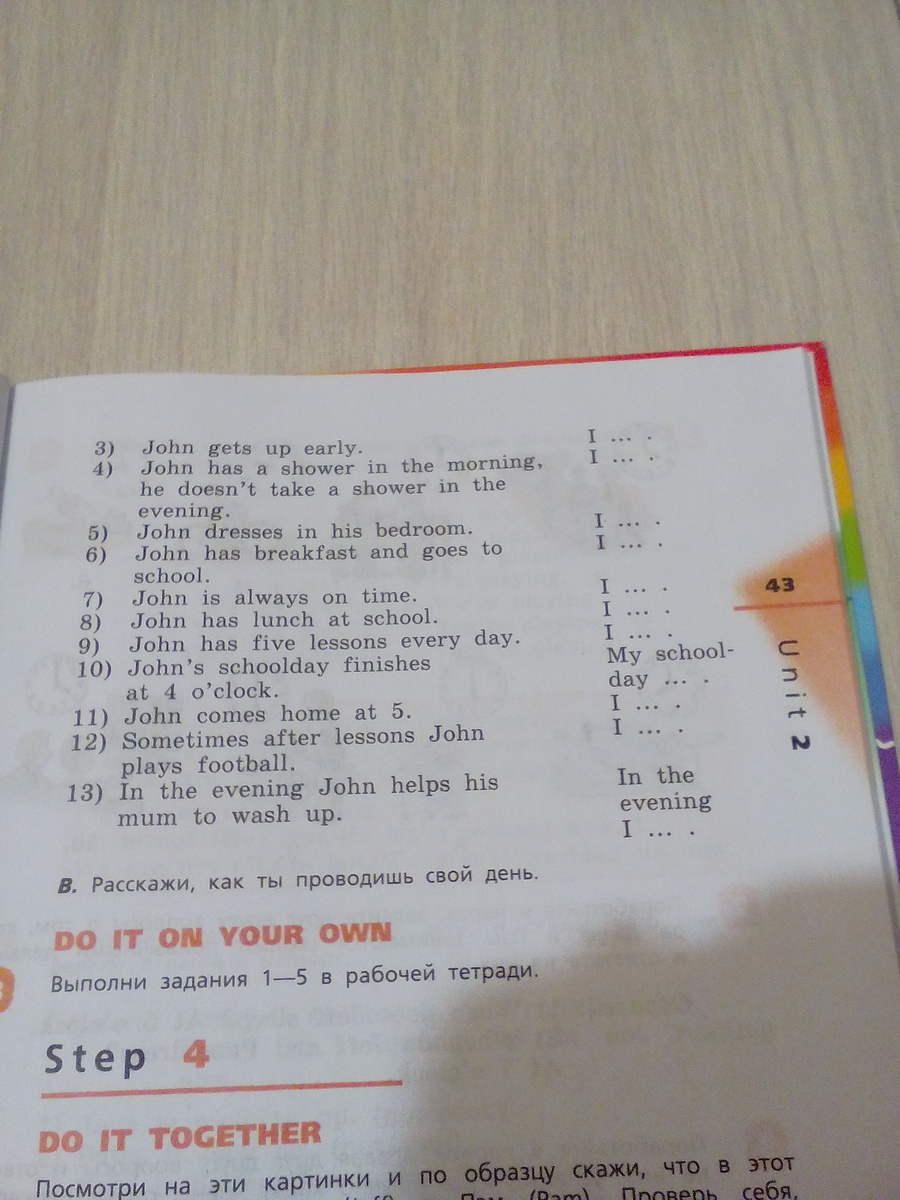 3) John gets up early. I ... .
4) John has a shower in the morning, I ... .
he doesn't take a shower in the
evening.
5) John dresses in his bedroom. I ... .
6) John has breakfast and goes to I ... .
school.
7) John is always on time. I ... .
8) John has lunch at school. I ... .
9) John has five lessons every day. I ... .
10) John's schoolday finishes My school-
at 4 o'clock. day ... .
11) John comes home at 5. I ... .
12) Sometimes after lessons John I ... .
plays football.
13) In the evening John helps his In the
mum to wash up. evening
I ... .
43
Unit 2
B. Расскажи, как ты проводишь свой день.
DO IT ON YOUR OWN
Выполни задания 1—5 в рабочей тетради.
Step 4
DO IT TOGETHER
Посмотри на эти картинки и по образцу скажи, что в этот
(Pam). Проверь себя,